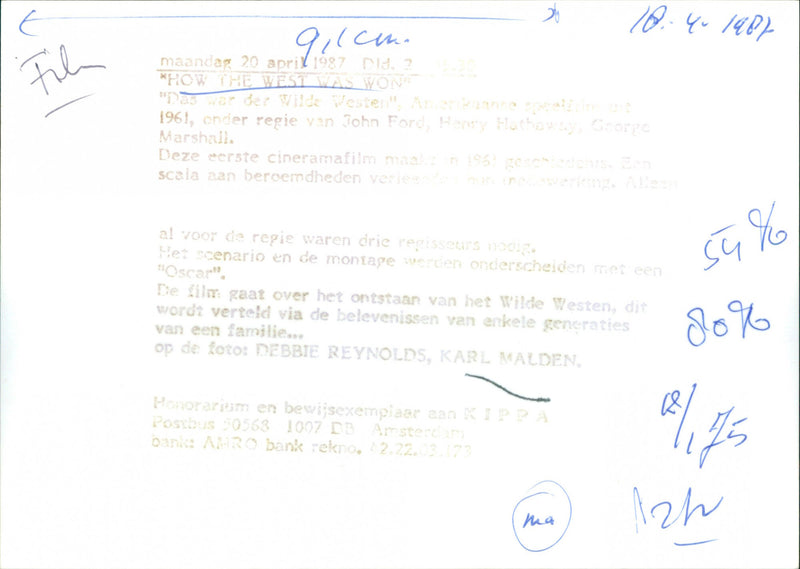 18-4-1987
Film
maandag 20 april 1987 Dld. 2
"HOW THE WEST WAS WON"
"Das war der Wilde Westen", Amerikaanse speelfilm uit
1961, onder regie van John Ford, Henry Hathaway, George
Marshall.
Deze eerste cineramafilm maakt in 1961 geschiedenis. Een
scala aan beroemdheden verleenden hun medewerking. Alleen
al voor de regie waren drie regisseurs nodig.
Het scenario en de montage werden onderscheiden met een
"Oscar".
De film gaat over het ontstaan van het Wilde Westen, dit
wordt verteld via de belevenissen van enkele generaties
van een familie...
op de foto: DEBBIE REYNOLDS, KARL MALDEN.
54%
80%
Honorarium en bewijsexemplaar aan K I P P A
Postbus 50568 1007 DB Amsterdam
bank: AMRO bank rekno. 42.22.03.173
12/175
ma